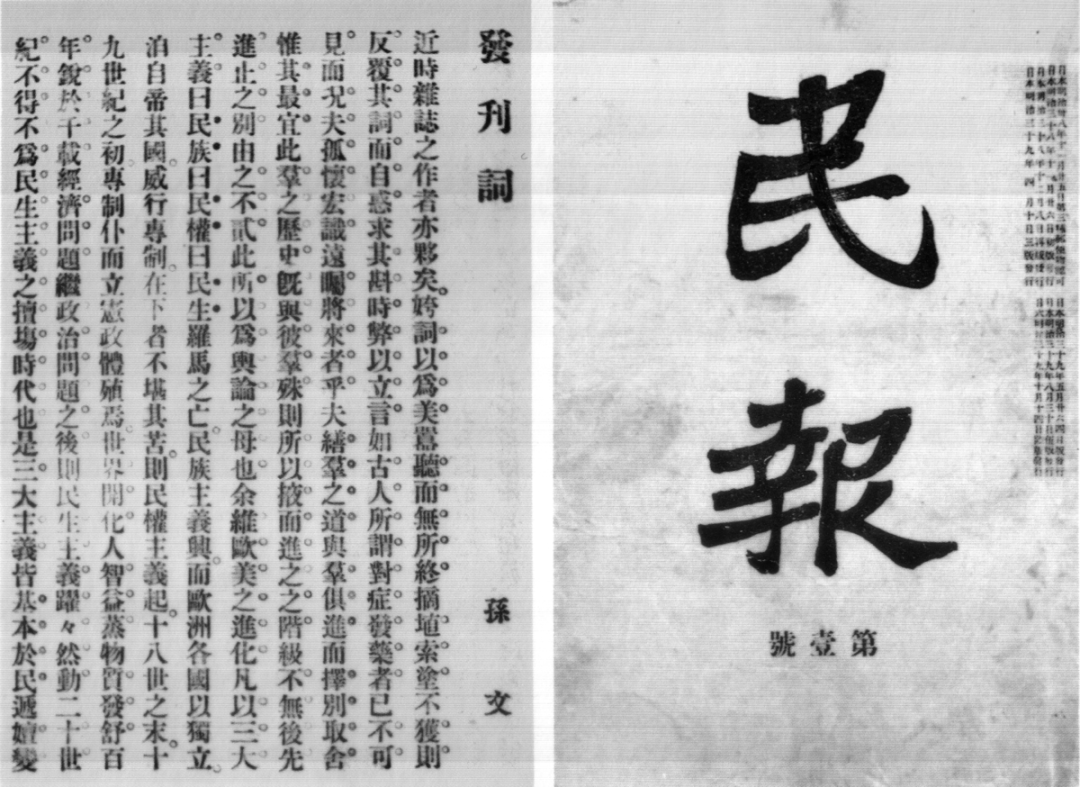 日本明治三十九年四月十日三版發行
民報
第壹號
發刊詞
孫文
近時雜誌之作者亦夥矣姱詞以爲美囂聽而無所終摘埴索塗不獲則
反覆其詞而自惑求其斟時弊以立言如古人所謂對症發藥者已不可
見而况夫孤懷宏識遠矚將來者乎夫繕羣之道與羣俱進而擇別取舍
惟其最宜此羣之歷史旣與彼羣殊則所以掖而進之之階級不無後先
進止之別由之不貳此所以爲輿論之母也余維歐美之進化凡以三大
主義曰民族曰民權曰民生羅馬之亡民族主義興而歐洲各國以獨立
泊自帝其國威行專制在下者不堪其苦則民權主義起十八世之末十
九世紀之初專制仆而立憲政體殖焉世界開化人智益蒸物質發舒百
年銳於千載經濟問題繼政治問題之後則民生主義躍々然動二十世
紀不得不爲民生主義之擅塲時代也是三大主義皆基本於民遞嬗變